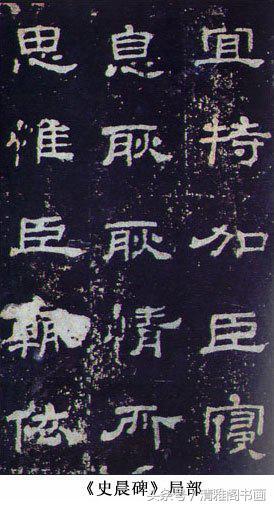 宜特加臣寑
息耿耿情所
思惟臣輒依
《史晨碑》局部
头条号/清雅阁书画